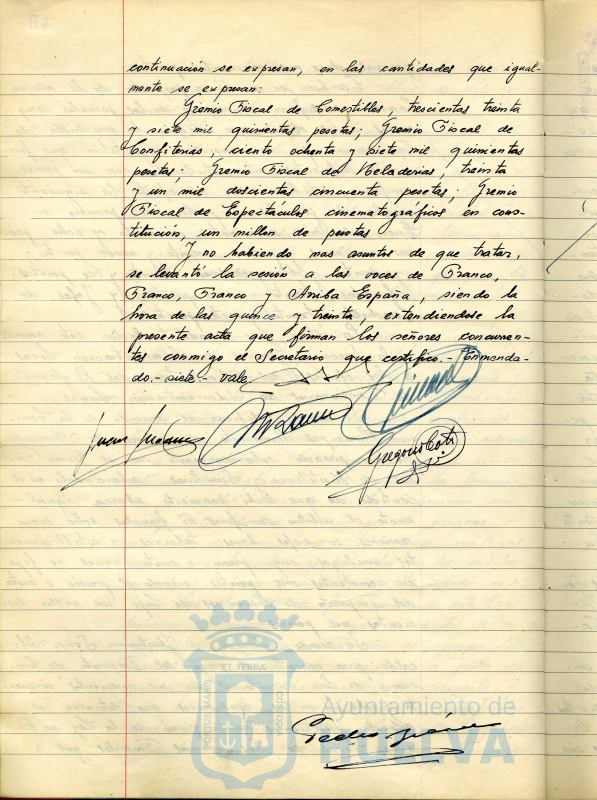 continuación se expresan, en las cantidades que igual-
mente se expresan:
Gremio Fiscal de Comestibles, trescientas treinta
y siete mil quinientas pesetas; Gremio Fiscal de
Confiterias, ciento ochenta y siete mil quinientas
pesetas; Gremio Fiscal de Heladerias, treinta
y un mil doscientas cincuenta pesetas; Gremio
Fiscal de Espectáculos cinematográficos en cons-
titución, un millon de pesetas
Y no habiendo mas asuntos de que tratar,
se levantó la sesión a las voces de Franco,
Franco, Franco y Arriba España, siendo la
hora de las quince y treinta, extendiendose la
presente acta que firman los señores concurren-
tes conmigo el Secretario que certifico.- Enmenda-
do.- siete.- vale.
Gregorio
ET TERRÆ
PORTUS MARIS
CUSTODIA
Ayuntamiento de
HUELVA
Pedro